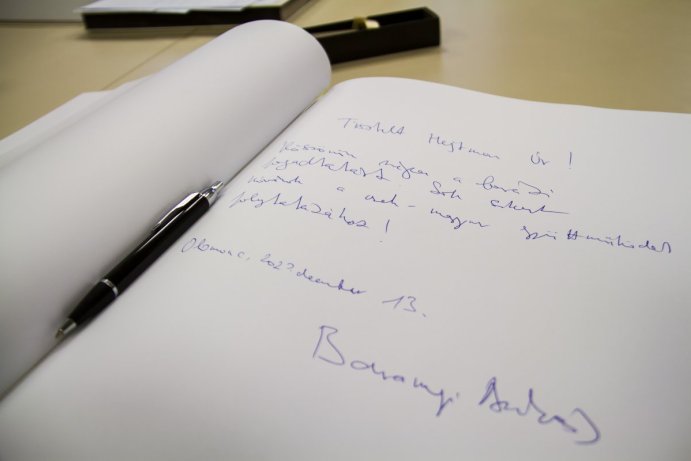 Tisztelt Hejtman Úr!
Köszönöm szépen a baráti
fogadtatást! Sok sikert
kívánok a cseh-magyar együttműködés
folytatásához!
Olomouc, december 13.
Baranyi András